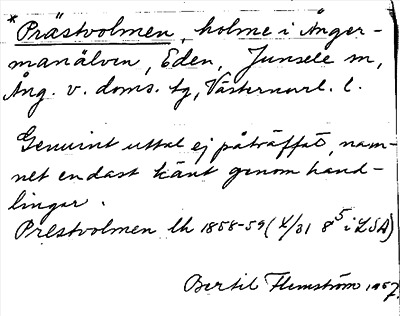 * Prästvolmen, holme i Ånger-
manälven, Eden, Junsele sn,
Ång. v. doms. tg, Västernorrl. l.
Genuint uttal ej påträffat, nam-
net endast känt genom hand-
lingar.
Prestvolmen lh 1858-59 (X/31 8⁵ i LSA)
Bertil Flemström 1957.